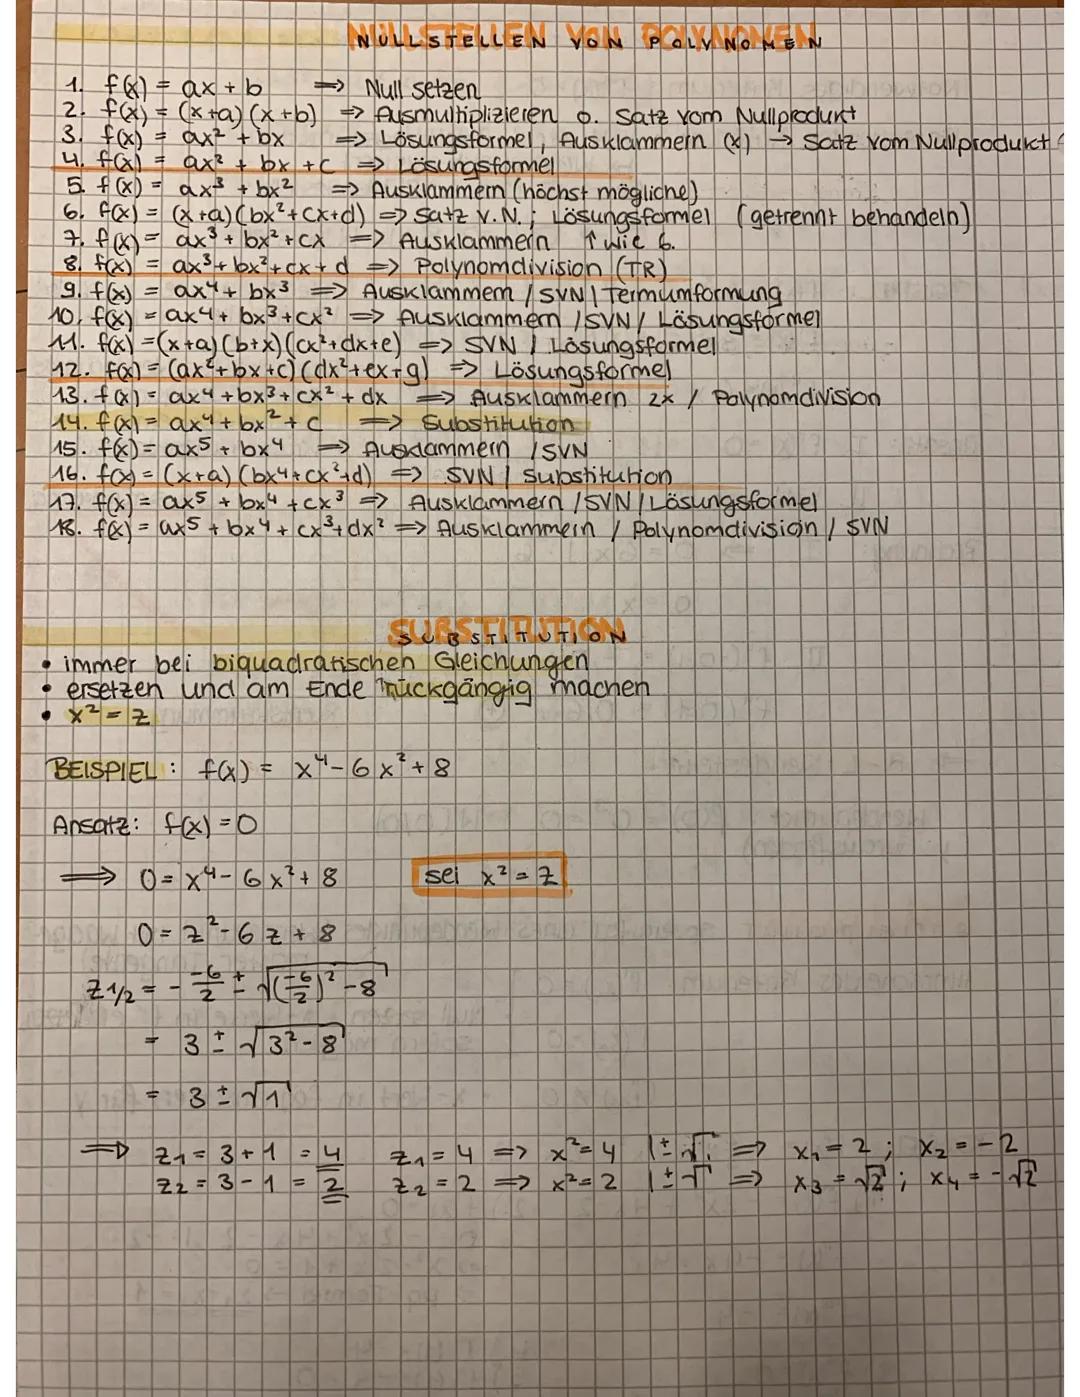 NULLSTELLEN VON POLYNOMEN
1. f(x) = ax + b ⇒ Null setzen
2. f(x) = (x+a)(x+b) ⇒ Ausmultiplizieren o. Satz vom Nullprodukt
3. f(x) = ax² + bx ⇒ Lösungsformel, Ausklammern (x) → Satz vom Nullprodukt
4. f(x) = ax² + bx + c ⇒ Lösungsformel
5. f(x) = ax³ + bx² ⇒ Ausklammern (höchst mögliche)
6. f(x) = (x+a)(bx²+cx+d) ⇒ Satz v. N. ; Lösungsformel (getrennt behandeln)
7. f(x) = ax³ + bx² + cx ⇒ Ausklammern ↑ wie 6.
8. f(x) = ax³ + bx² + cx + d ⇒ Polynomdivision (TR)
9. f(x) = ax⁴ + bx³ ⇒ Ausklammern / SVN | Termumformung
10. f(x) = ax⁴ + bx³ + cx² ⇒ Ausklammern / SVN / Lösungsformel
11. f(x) = (x+a)(b+x)(cx²+dx+e) ⇒ SVN / Lösungsformel
12. f(x) = (ax²+bx+c)(dx²+ex+g) ⇒ Lösungsformel
13. f(x) = ax⁴ + bx³ + cx² + dx ⇒ Ausklammern 2x / Polynomdivision
14. f(x) = ax⁴ + bx² + c ⇒ Substitution
15. f(x) = ax⁵ + bx⁴ ⇒ Ausklammern / SVN
16. f(x) = (x+a)(bx⁴+cx²+d) ⇒ SVN / Substitution
17. f(x) = ax⁵ + bx⁴ + cx³ ⇒ Ausklammern / SVN / Lösungsformel
18. f(x) = ax⁵ + bx⁴ + cx³ + dx² ⇒ Ausklammern / Polynomdivision / SVN
SUBSTITUTION
• immer bei biquadratischen Gleichungen
• ersetzen und am Ende rückgängig machen
• x² = z
BEISPIEL : f(x) = x⁴ - 6x² + 8
Ansatz: f(x) = 0
⇒ 0 = x⁴ - 6x² + 8 sei x² = z
0 = z² - 6z + 8
z1/2 = - -6/2 ± √((-6/2)² - 8)
= 3 ± √(3² - 8)
= 3 ± √1
⇒ z₁ = 3 + 1 = 4 z₁ = 4 ⇒ x² = 4 |±√ ⇒ x₁ = 2 ; x₂ = -2
z₂ = 3 - 1 = 2 z₂ = 2 ⇒ x² = 2 |±√ ⇒ x₃ = √2 ; x₄ = -√2